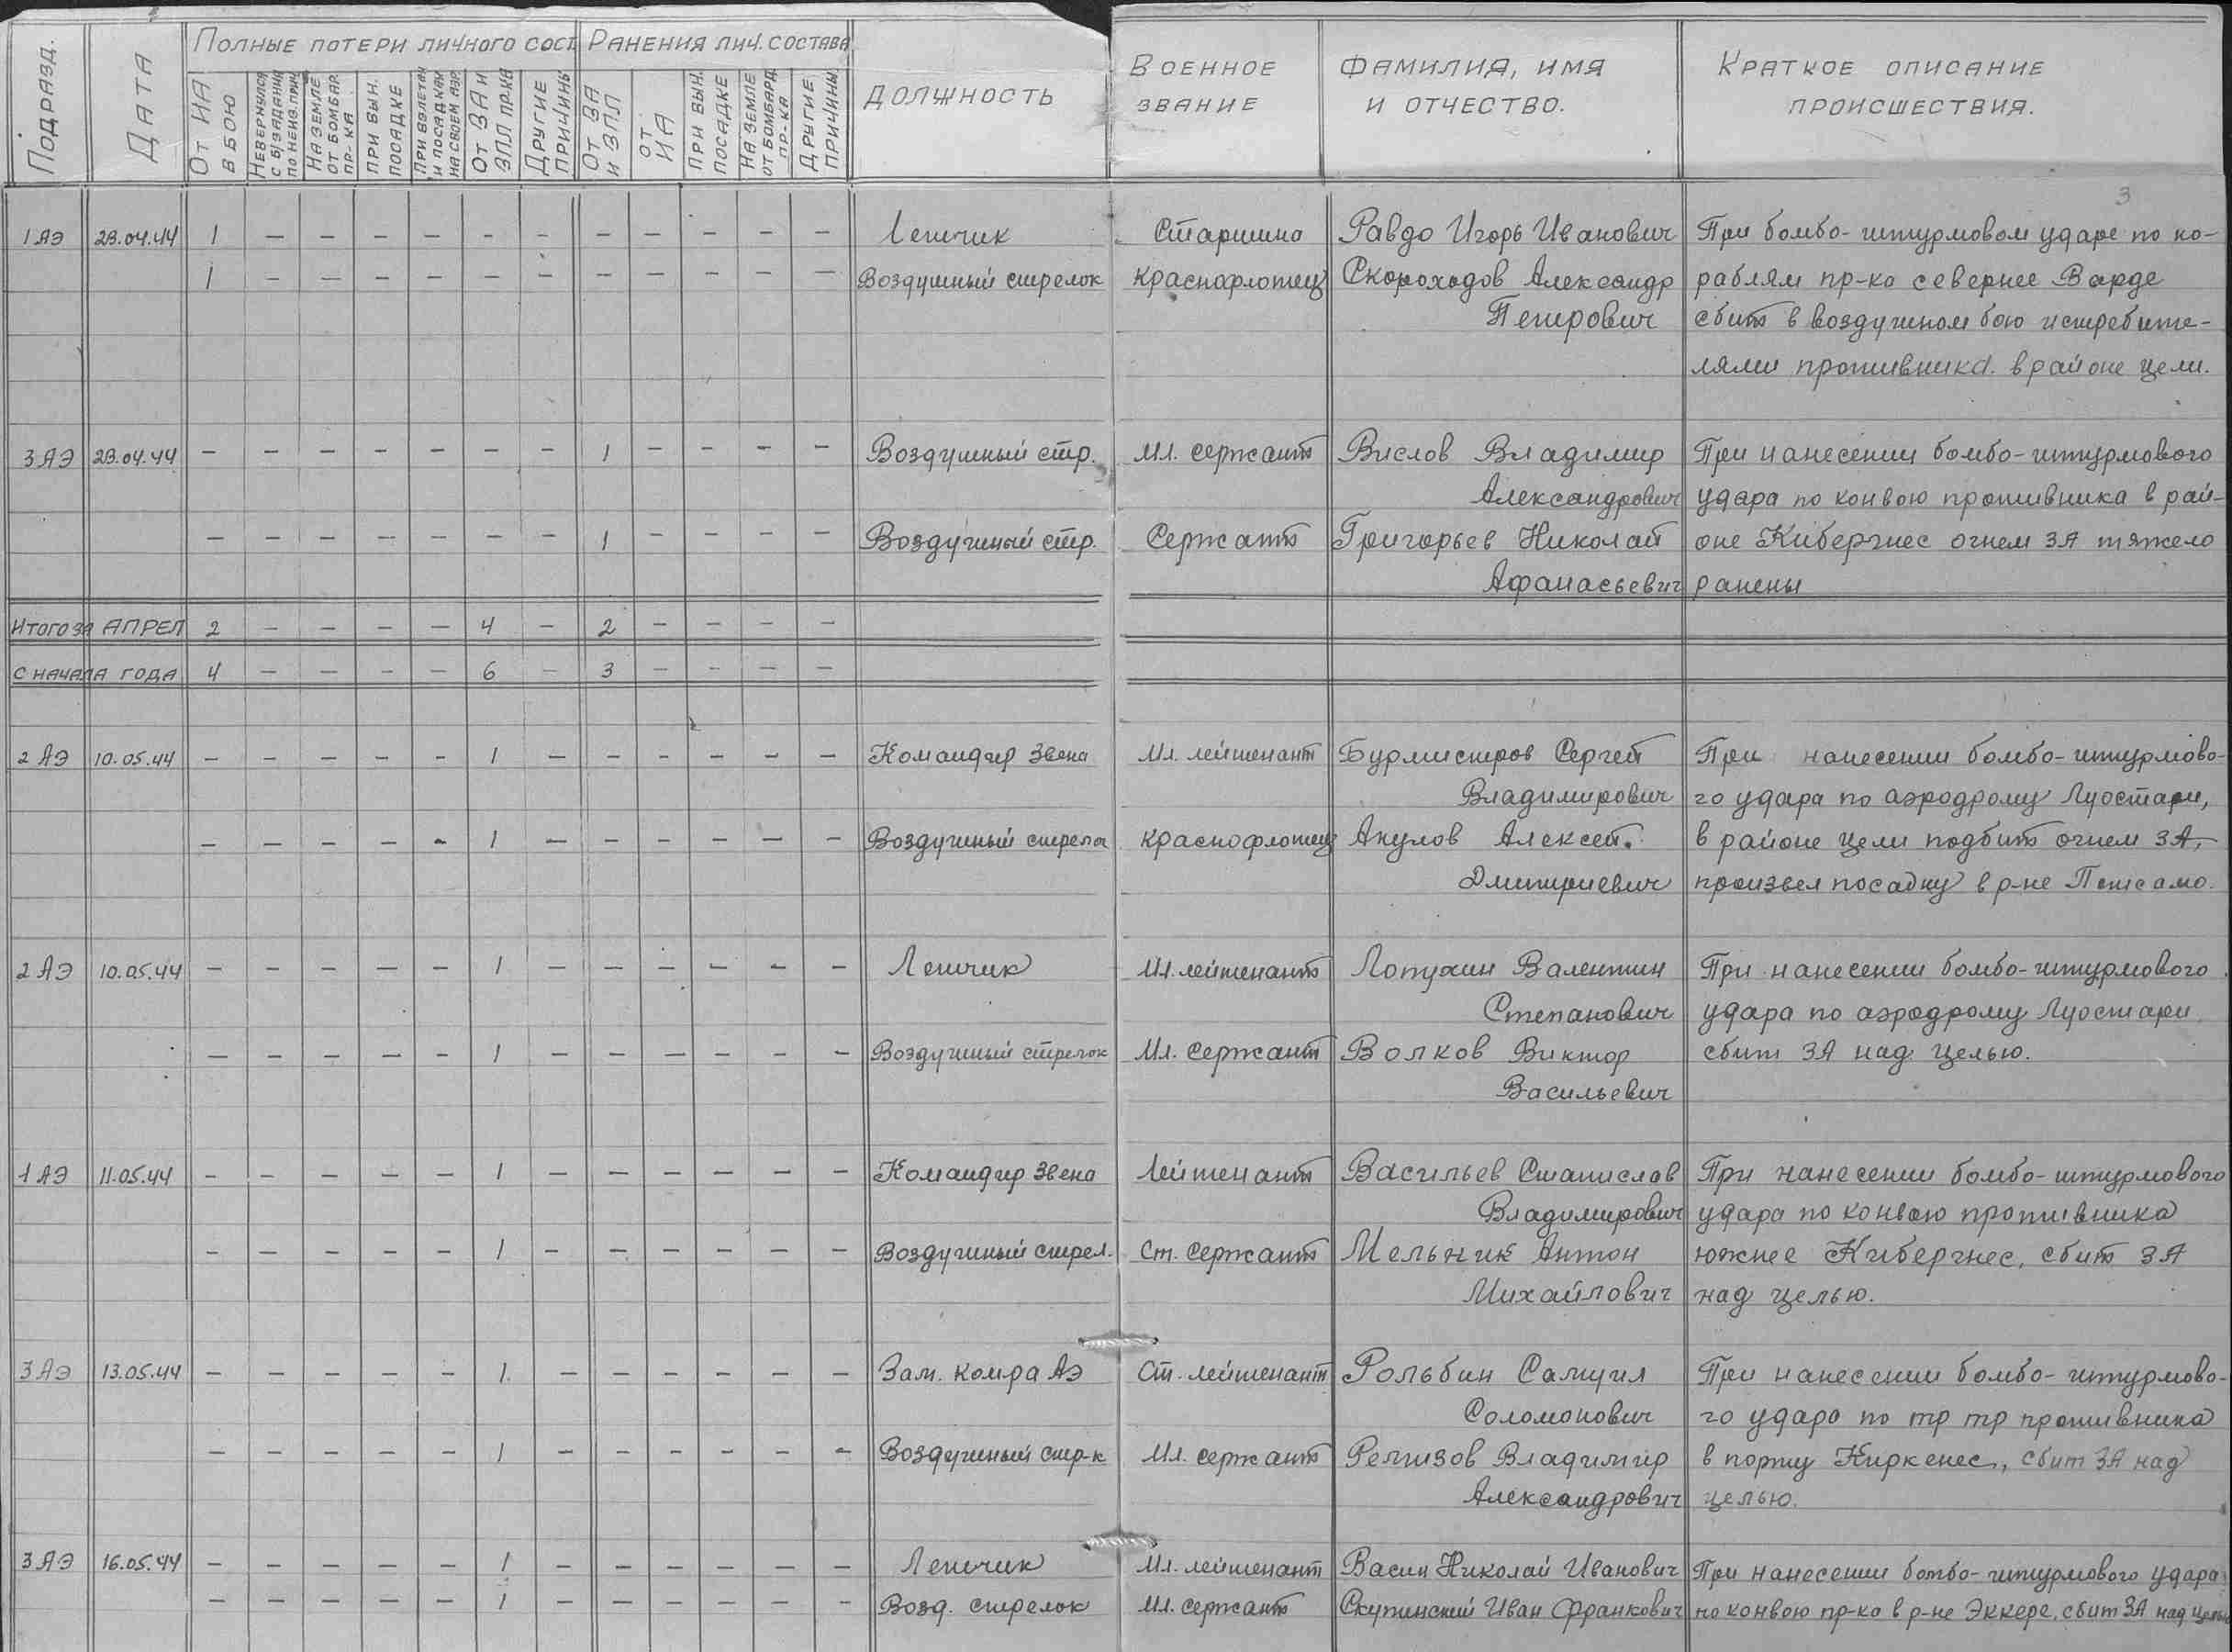 3
Подразд. Дата Полные потери личного сост. Ранения лич. состава Должность Военное звание Фамилия, имя и отчество. Краткое описание происшествия.
От ИА в бою
Невернулся с б/задания по неизв. прич.
На земле от бомбар. пр-ка
При вын. посадке
При взлетах и посадках на своем аэр.
От ЗА и ЗПЛ пр-ка
Другие причины
От ЗА и ЗПЛ
От ИА
При вын. посадке
На земле от бомбард. пр-ка
Другие причины
1 АЭ 28.04.44 1 – – – – – – – – – – – Летчик Старшина Равдо Игорь Иванович При бомбо-штурмовом ударе по ко-
1 – – – – – – – – – – – Воздушный стрелок Краснофлотец Скороходов Александр раблям пр-ка севернее Варде
Петрович сбит в воздушном бою истребите-
лями противника в районе цели.
3 АЭ 28.04.44 – – – – – – – 1 – – – – Воздушный стр. Мл. сержант Вислов Владимир При нанесении бомбо-штурмового
Александрович удара по конвою противника в рай-
– – – – – – – 1 – – – – Воздушный стр. Сержант Григорьев Николай оне Кибергнес огнем ЗА тяжело
Афанасьевич ранены
Итого за АПРЕЛ 2 – – – – 4 – 2 – – – –
С начала года 4 – – – – 6 – 3 – – – –
2 АЭ 10.05.44 – – – – – 1 – – – – – – Командир звена Мл. лейтенант Бурмистров Сергей При нанесении бомбо-штурмово-
Владимирович го удара по аэродрому Луостари,
– – – – – 1 – – – – – – Воздушный стрелок Краснофлотец Акулов Алексей в районе цели подбит огнем ЗА,
Дмитриевич произвел посадку в р-не Петсамо.
2 АЭ 10.05.44 – – – – – 1 – – – – – – Летчик Мл. лейтенант Лопухин Валентин При нанесении бомбо-штурмового
Степанович удара по аэродрому Луостари
– – – – – 1 – – – – – – Воздушный стрелок Мл. сержант Волков Виктор сбит ЗА над целью.
Васильевич
1 АЭ 11.05.44 – – – – – 1 – – – – – – Командир звена Лейтенант Васильев Станислав При нанесении бомбо-штурмового
Владимирович удара по конвою противника
– – – – – 1 – – – – – – Воздушный стрел. Ст. сержант Мельник Антон южнее Кибергнес, сбит ЗА
Михайлович над целью.
3 АЭ 13.05.44 – – – – – 1 – – – – – – Зам. комра АЭ Ст. лейтенант Рольбин Самуил При нанесении бомбо-штурмово-
Соломонович го удара по тр тр противника
– – – – – 1 – – – – – – Воздушный стр-к Мл. сержант Ремизов Владимир в порту Киркенес, сбит ЗА над
Александрович целью.
3 АЭ 16.05.44 – – – – – 1 – – – – – – Летчик Мл. лейтенант Васин Николай Иванович При нанесении бомбо-штурмового удара
– – – – – 1 – – – – – – Возд. стрелок Мл. сержант Скупинский Иван Франкович по конвою пр-ка в р-не Эккере, сбит ЗА над целью